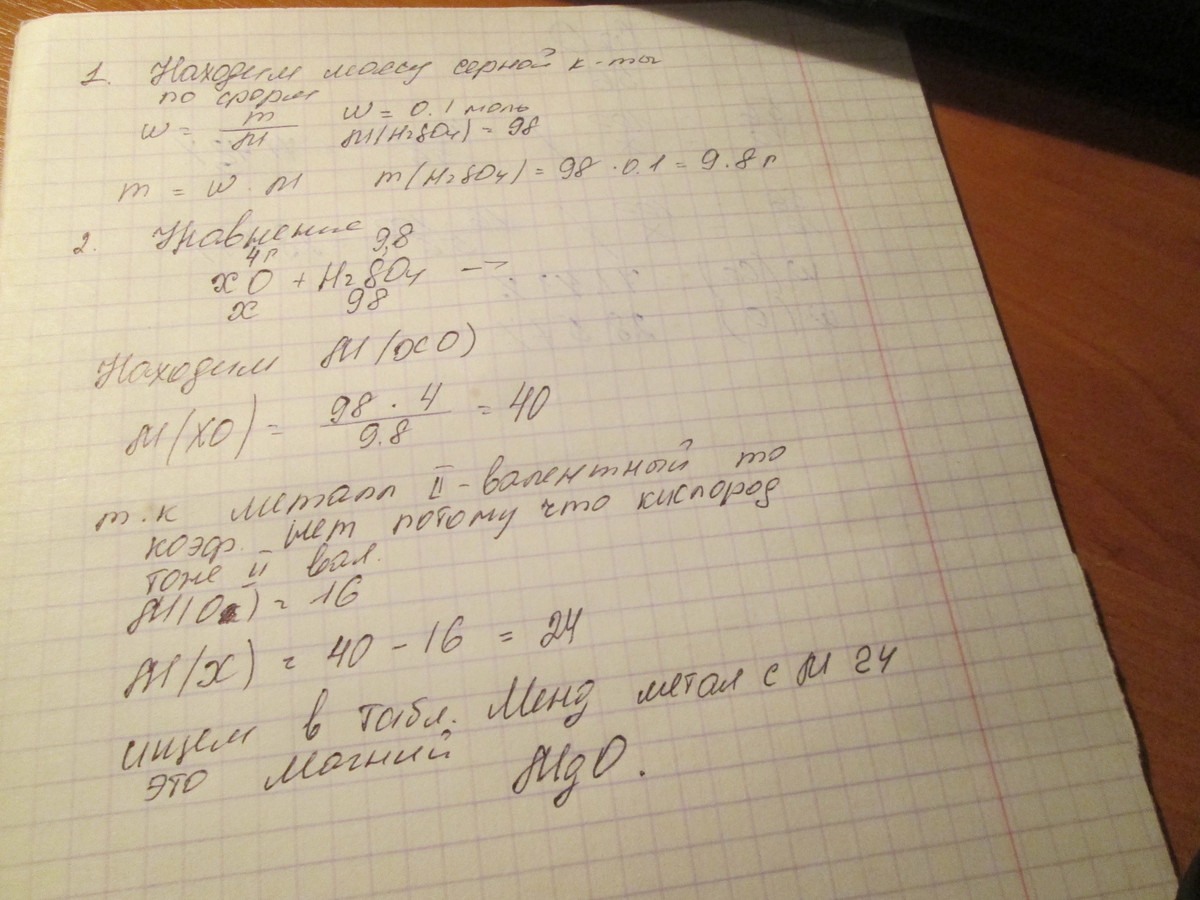 1. Находим массу серной к-ты
по форм
w = m/M w = 0.1 моль
M(H2SO4) = 98
m = w · M m(H2SO4) = 98 · 0.1 = 9.8 г
2. Уравнение
4г 9,8
xO + H2SO4 →
x 98
Находим M(xO)
M(XO) = 98 · 4 / 9.8 = 40
т.к металл II-валентный то
коэф. нет потому что кислород
тоже II вал.
M(O) = 16
M(X) = 40 - 16 = 24
ищем в табл. Менд метал с M 24
это магний MgO.